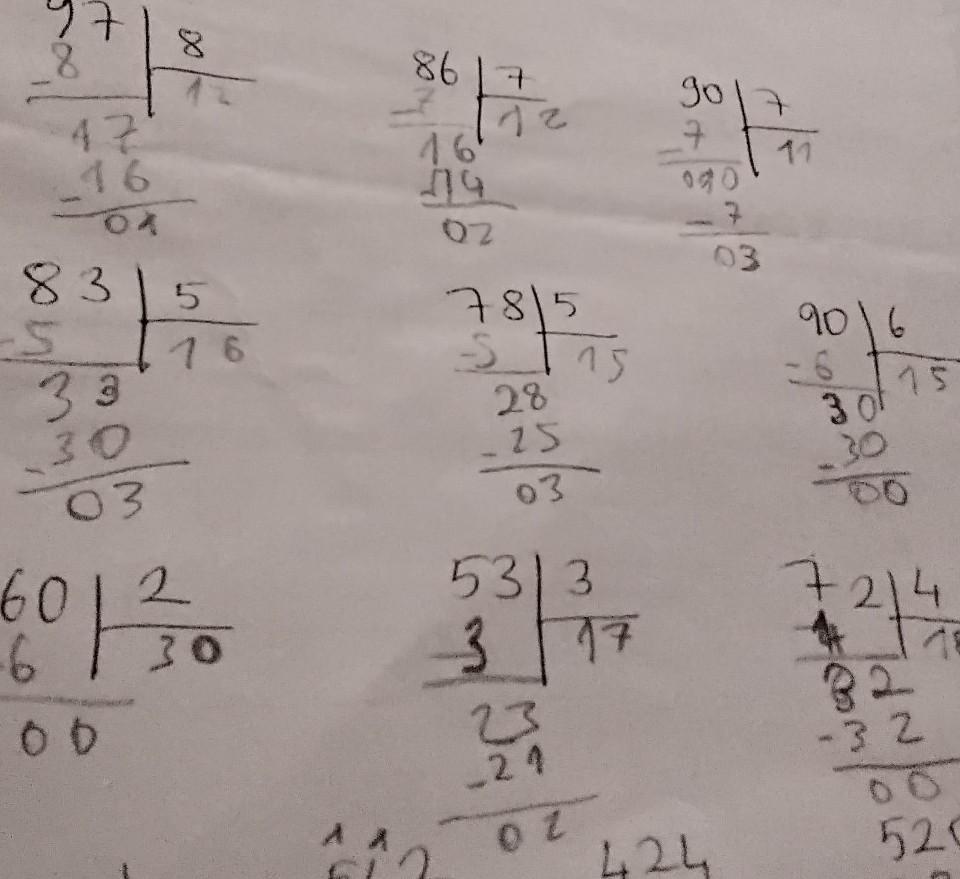 97 8
-8 12
17
-16
01
86 7
-7 12
16
-14
02
90 7
-7 11
010
-7
03
83 5
-5 16
33
-30
03
78 5
-5 15
28
-25
03
90 6
-6 15
30
-30
00
60 2
-6 30
00
53 3
-3 17
23
-21
02
72 4
-4
32
-32
00
1 1
424